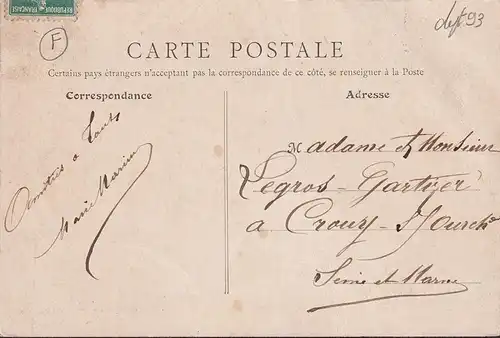 REPUBLIQUE FRANCAISE
F
dept 93
CARTE POSTALE
Certains pays étrangers n'acceptant pas la correspondance de ce côté, se renseigner à la Poste
Correspondance
Amitiés a tous
Marie
Adresse
Madame et Monsieur
Legros
a Crouy - S/ Ourcq
Seine et Marne